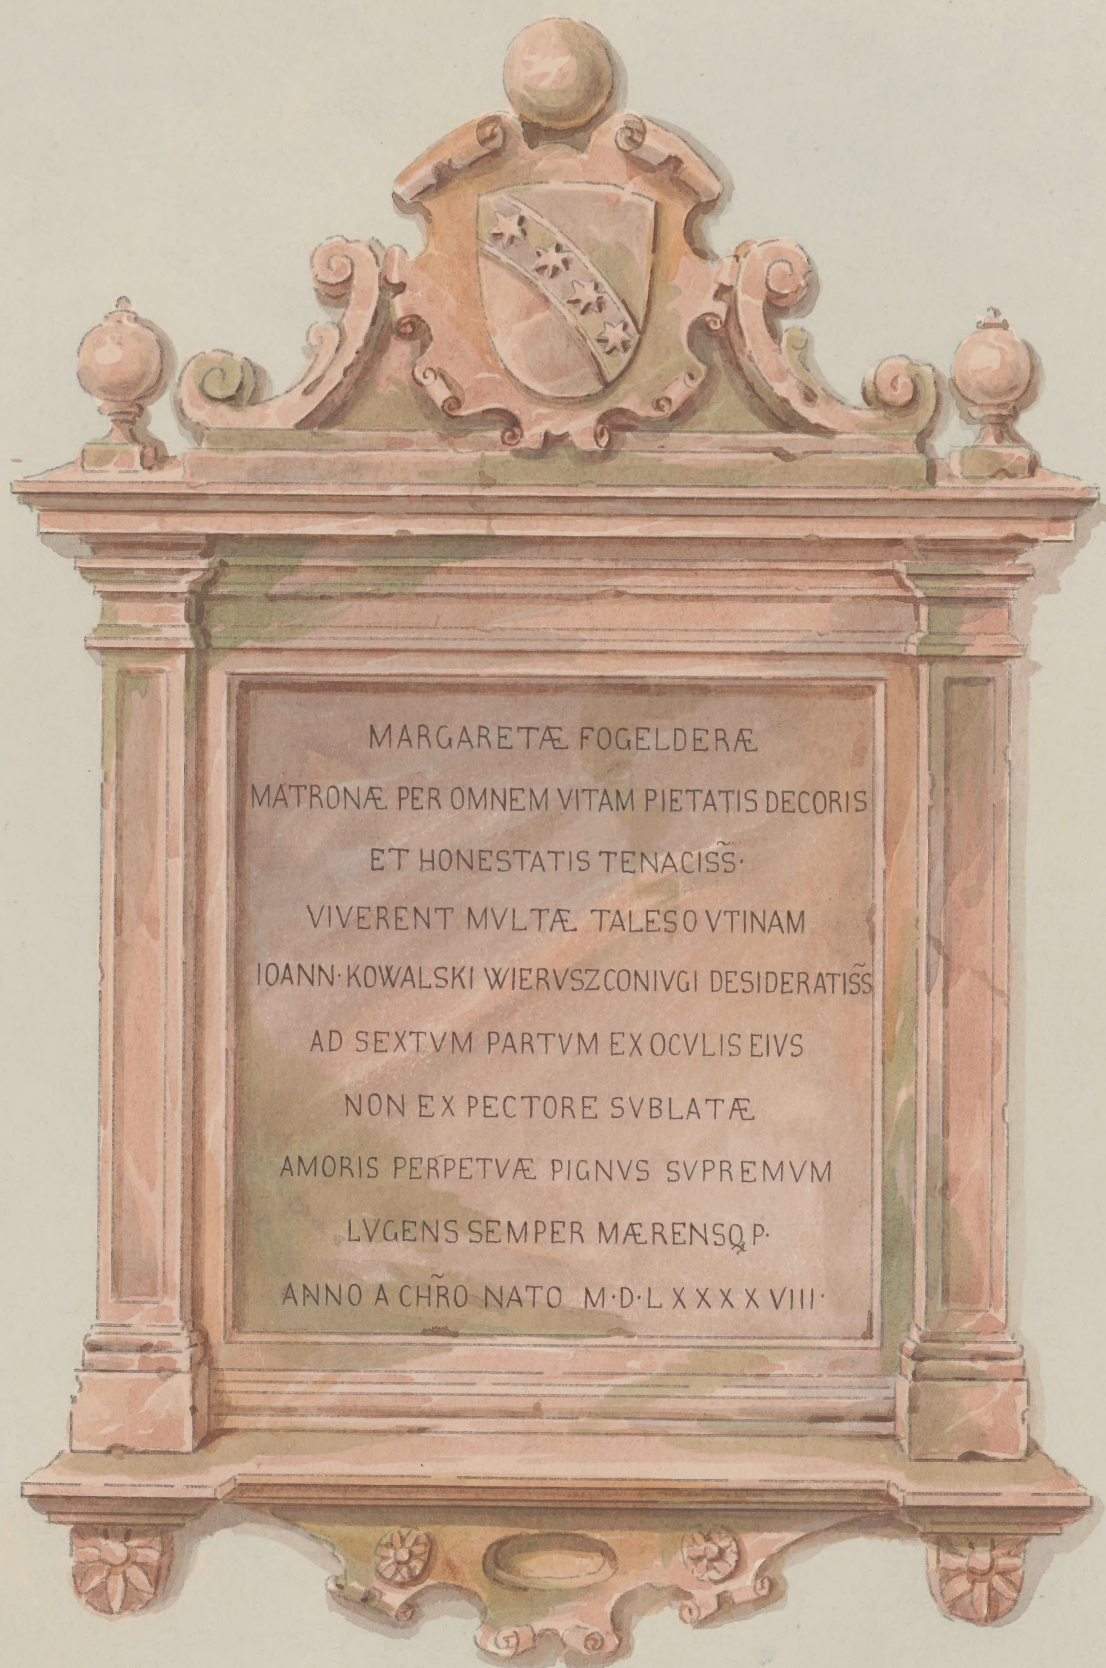 MARGARETÆ FOGELDERÆ
MATRONÆ PER OMNEM VITAM PIETATIS DECORIS
ET HONESTATIS TENACISS̃·
VIVERENT MVLTÆ TALES O VTINAM
IOANN·KOWALSKI WIERVSZ CONIVGI DESIDERATISS̃
AD SEXTVM PARTVM EX OCVLIS EIVS
NON EX PECTORE SVBLATÆ
AMORIS PERPETVÆ PIGNVS SVPREMVM
LVGENS SEMPER MÆRENSQ P·
ANNO A CHR̃O NATO M·D·L X X X X VIII·